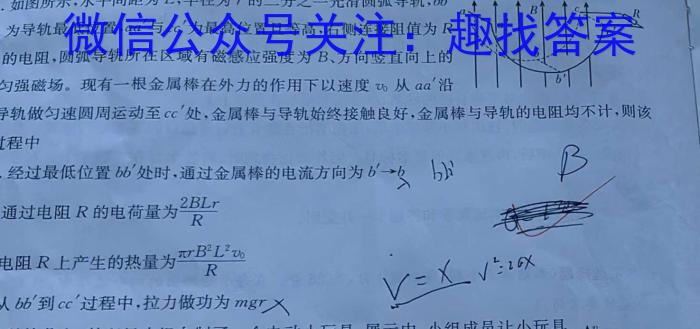 .如图所示,水平间距为L,半径为r的二分之一光滑圆弧导轨,bb′
为导轨最低位置,aa′与cc′为最高位置且等高,右侧连接阻值为R
微信公众号关注：趣找答案
的电阻,圆弧导轨所在区域有磁感应强度为B、方向竖直向上的
匀强磁场。现有一根金属棒在外力的作用下以速度v₀从aa′沿
导轨做匀速圆周运动至cc′处,金属棒与导轨始终接触良好,金属棒与导轨的电阻均不计,则该
过程中
.经过最低位置bb′处时,通过金属棒的电流方向为b′→b
bb′
B
通过电阻R的电荷量为2BLr/R
电阻R上产生的热量为πrB²L²v₀/R
V=X
V²=2ax
从bb′到cc′过程中,拉力做功为mgr
B
c
R
b′